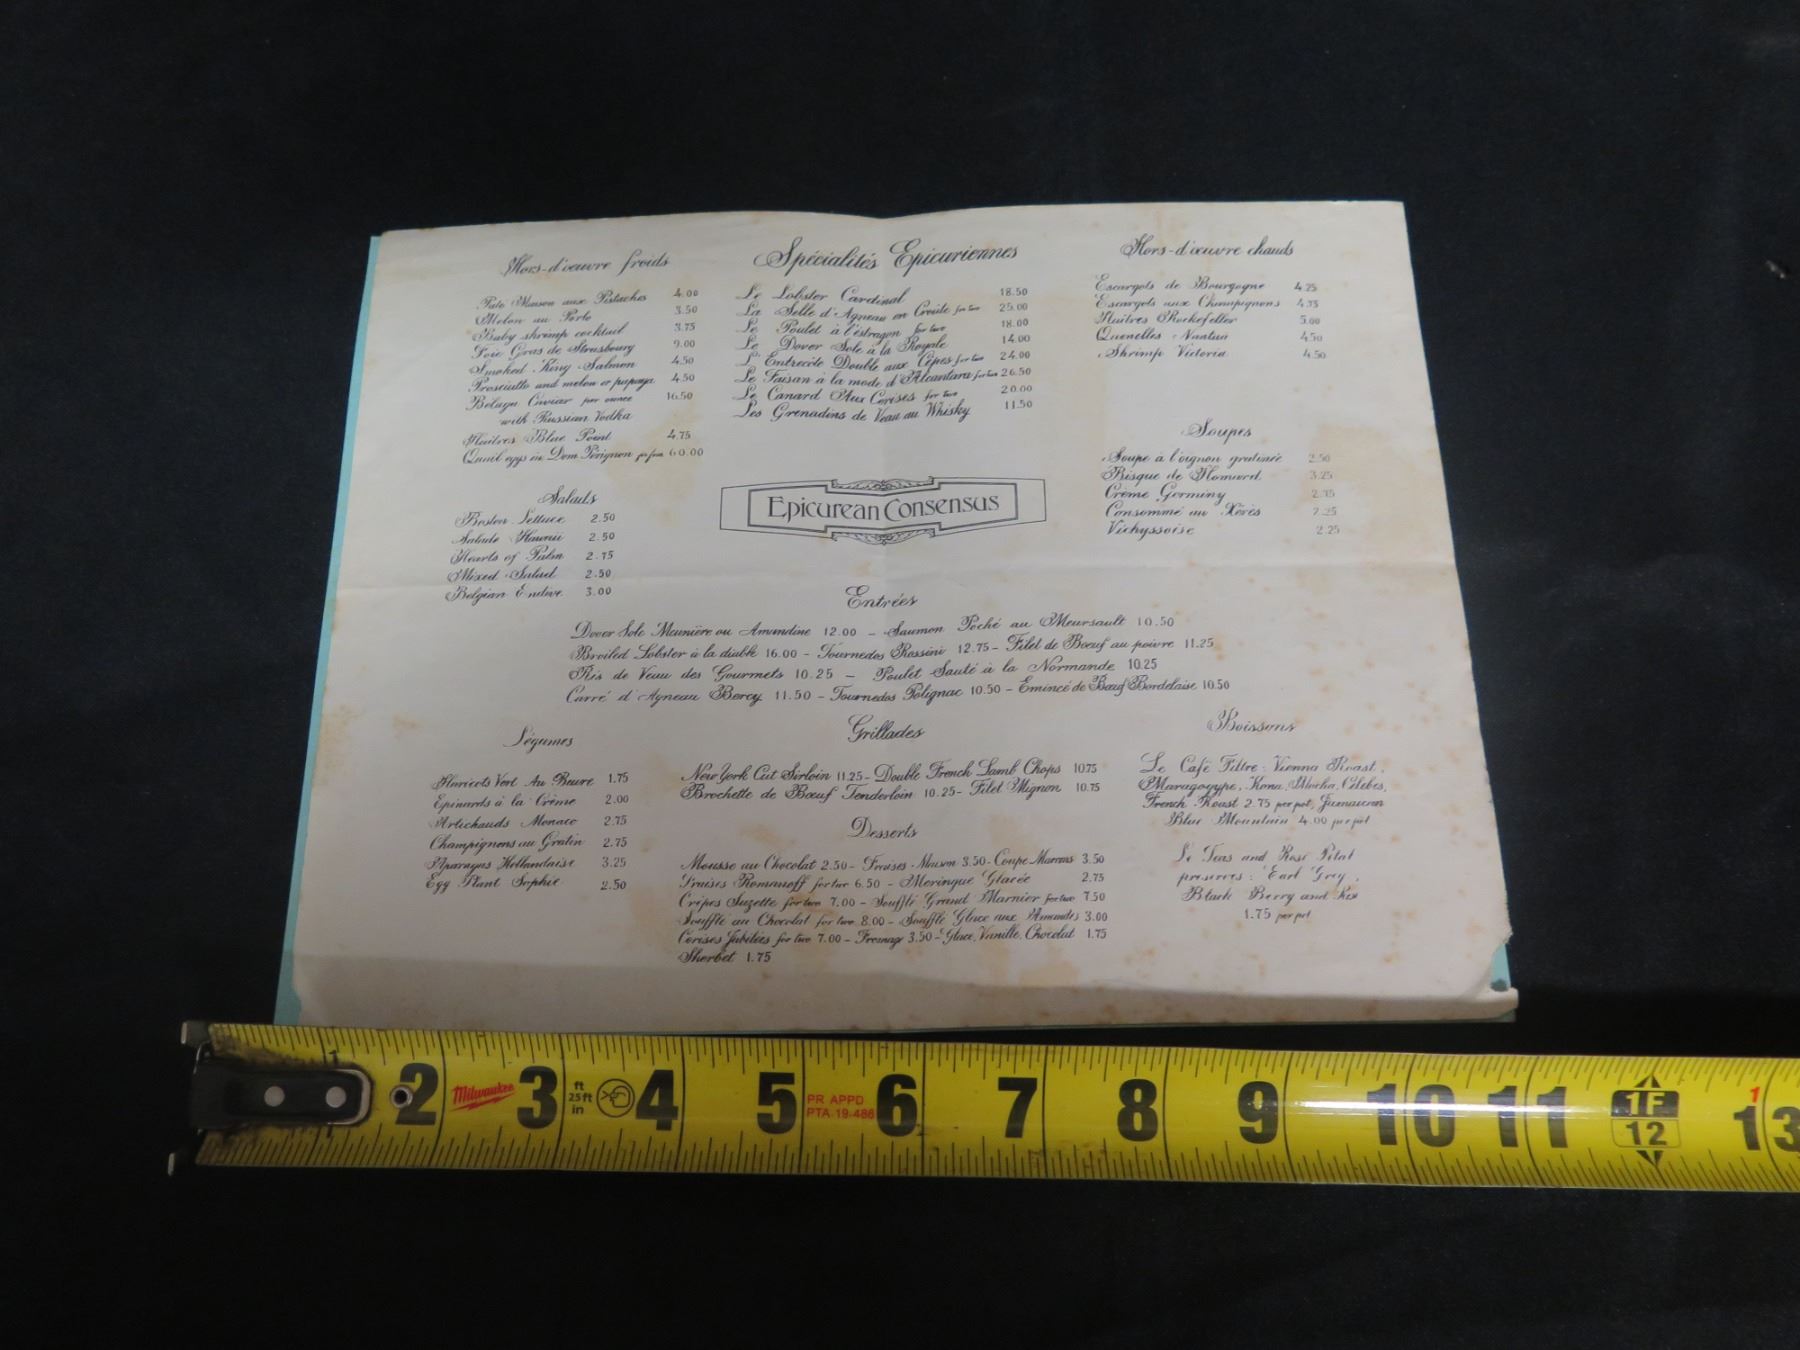 Hors-d'œuvre froids
Paté Maison aux Pistaches 4.00
Melon au Porto 3.50
Baby shrimp cocktail 3.75
Foie Gras de Strasbourg 9.00
Smoked King Salmon 4.50
Prosciutto and melon or papaya 4.50
Beluga Caviar per ounce 16.50
with Russian Vodka
Huitres Blue Point 4.75
Quail eggs in Dom Pérignon for four 60.00
Salads
Boston Lettuce 2.50
Salade Hawaii 2.50
Hearts of Palm 2.75
Mixed Salad 2.50
Belgian Endive 3.00
Spécialités Epicuriennes
Le Lobster Cardinal 18.50
La Selle d'Agneau en Croûte for two 25.00
Le Poulet à l'éstragon for two 18.00
Le Dover Sole à la Royale 14.00
L'Entrecôte Double aux Cèpes for two 24.00
Le Faisan à la mode d'Alcantara for two 26.50
Le Canard Aux Cerises for two 20.00
Les Grenadins de Veau au Whisky 11.50
Hors-d'œuvre chauds
Escargots de Bourgogne 4.25
Escargots aux Champignons
Huitres Rockefeller 5.00
Quenelles Nantua 4.50
Shrimp Victoria 4.50
Soupes
Soupe à l'oignon gratinée 2.50
Bisque de Homard 3.25
Crème Germiny
Consommé au Xérès 2.25
Vichyssoise 2.25
Epicurean Consensus
Entrées
Dover Sole Meunière ou Amandine 12.00 - Saumon Poché au Meursault 10.50
Broiled Lobster à la diable 16.00 - Tournedos Rossini 12.75 - Filet de Bœuf au poivre 11.25
Ris de Veau des Gourmets 10.25 - Poulet Sauté à la Normande 10.25
Carré d'Agneau Bercy 11.50 - Tournedos Polignac 10.50 - Emincé de Bœuf Bordelaise 10.50
Légumes
Haricots Vert Au Beure 1.75
Epinards à la Crème 2.00
Artichauds Monaco 2.75
Champignons au Gratin 2.75
Aparagus Hollandaise 3.25
Egg Plant Sophie 2.50
Grillades
New York Cut Sirloin 11.25 - Double French Lamb Chops 10.75
Brochette de Bœuf Tenderloin 10.25 - Filet Mignon 10.75
Desserts
Mousse au Chocolat 2.50 - Fraises Maison 3.50 - Coupe Marrons 3.50
Fraises Romanoff for two 6.50 - Meringue Glacée 2.75
Crêpes Suzette for two 7.00 - Soufflé Grand Marnier for two 7.50
Soufflé au Chocolat for two 8.00 - Soufflé Glace aux Amandes 3.00
Cerises Jubilées for two 7.00 - Fromage 3.50 - Glace, Vanille, Chocolat 1.75
Sherbet 1.75
Boissons
Le Café Filtre: Vienna Roast,
Maragogype, Kona, Mocha, Célebes,
French Roast 2.75 per pot, Jamaican
Blue Mountain 4.00 per pot
Le Teas and Rose Petal
preserves: Earl Grey,
Black Berry and
1.75 per pot
1 2 Milwaukee 3 ft 25ft in 4 5 PR APPD PTA.19-486 6 7 8 9 10 11 1F 12 1 13